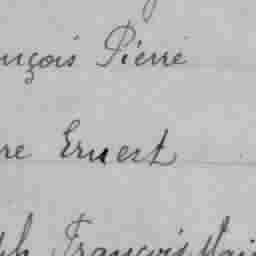 nçois Pierre
re Ernest
ph François Mari